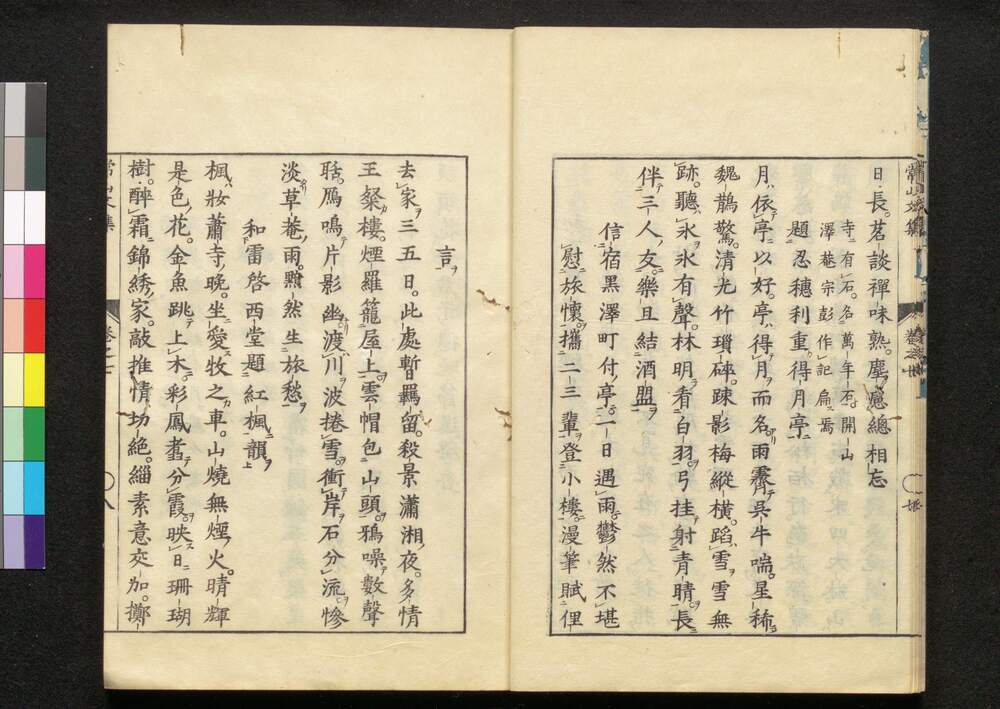 日長。茗談禪味熟。塵慮總相忘
寺有石。名萬年石。開山
澤菴宗彭作記扁焉
題忍穗利重。得月亭
月依亭以好。亭得月而名。雨霽吳牛喘。星稀
魏鵲驚。清光竹瑣碎。疎影梅縱橫。蹈雪雪無
跡。聽氷氷有聲。林明看白羽。弓挂射青晴。長
伴三人友。樂且結酒盟
信宿黒澤町付亭。一日遇雨鬱然不堪
慰旅懷。攜二三輩登小樓。漫筆賦俚
言
去家三五日。此處暫羈留。殺景瀟湘夜。多情
王粲樓。煙羅籠屋上。雲帽包山頭。鴉噪數聲
聒。鴈鳴片影幽。渡川波捲雪。衝岸石分流。慘
淡草菴雨。黯然生旅愁
和雷啓西堂題紅楓韻
楓妝蕭寺晚。坐愛牧之車。山燒無煙火。晴輝
是色花。金魚跳上木。彩鳳翥分霞。映日珊瑚
樹。醉霜錦綉家。敲推情功絶。緇素意交加。擲
常山文集
卷之十
八